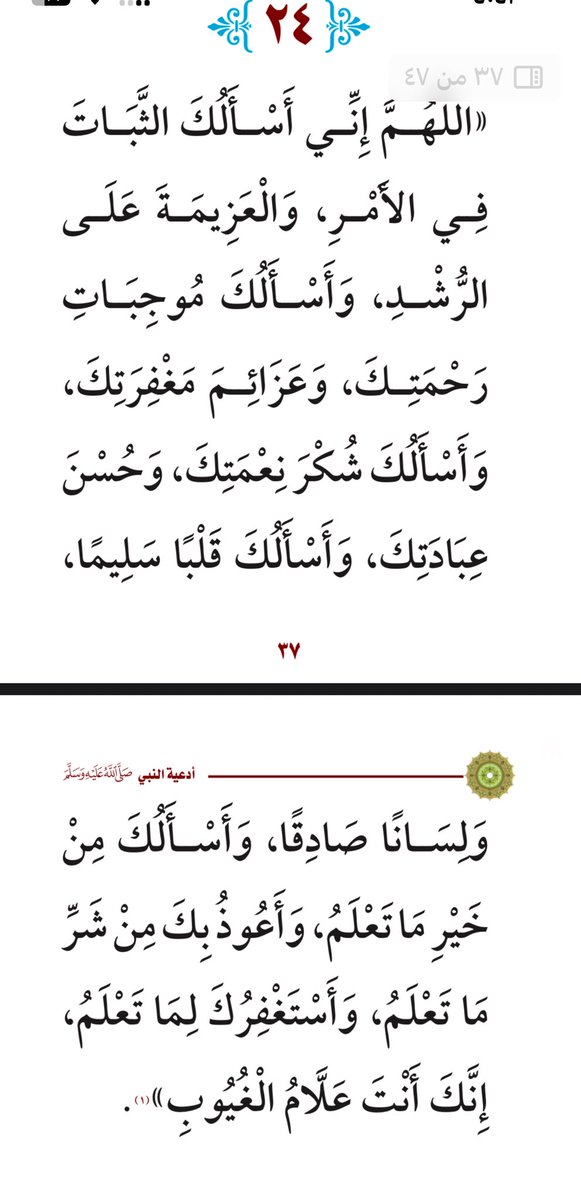 { ٢٤ }
٣٧ من ٤٧
«اللهُمَّ إِنِّي أَسْأَلُكَ الثَّبَاتَ
فِي الأَمْرِ، وَالْعَزِيمَةَ عَلَى
الرُّشْدِ، وَأَسْأَلُكَ مُوجِبَاتِ
رَحْمَتِكَ، وَعَزَائِمَ مَغْفِرَتِكَ،
وَأَسْأَلُكَ شُكْرَ نِعْمَتِكَ، وَحُسْنَ
عِبَادَتِكَ، وَأَسْأَلُكَ قَلْبًا سَلِيمًا،
٣٧
أدعية النبي صَلَّى اللَّهُ عَلَيْهِ وَسَلَّمَ
وَلِسَانًا صَادِقًا، وَأَسْأَلُكَ مِنْ
خَيْرِ مَا تَعْلَمُ، وَأَعُوذُ بِكَ مِنْ شَرِّ
مَا تَعْلَمُ، وَأَسْتَغْفِرُكَ لِمَا تَعْلَمُ،
إِنَّكَ أَنْتَ عَلَّامُ الْغُيُوبِ»(١).